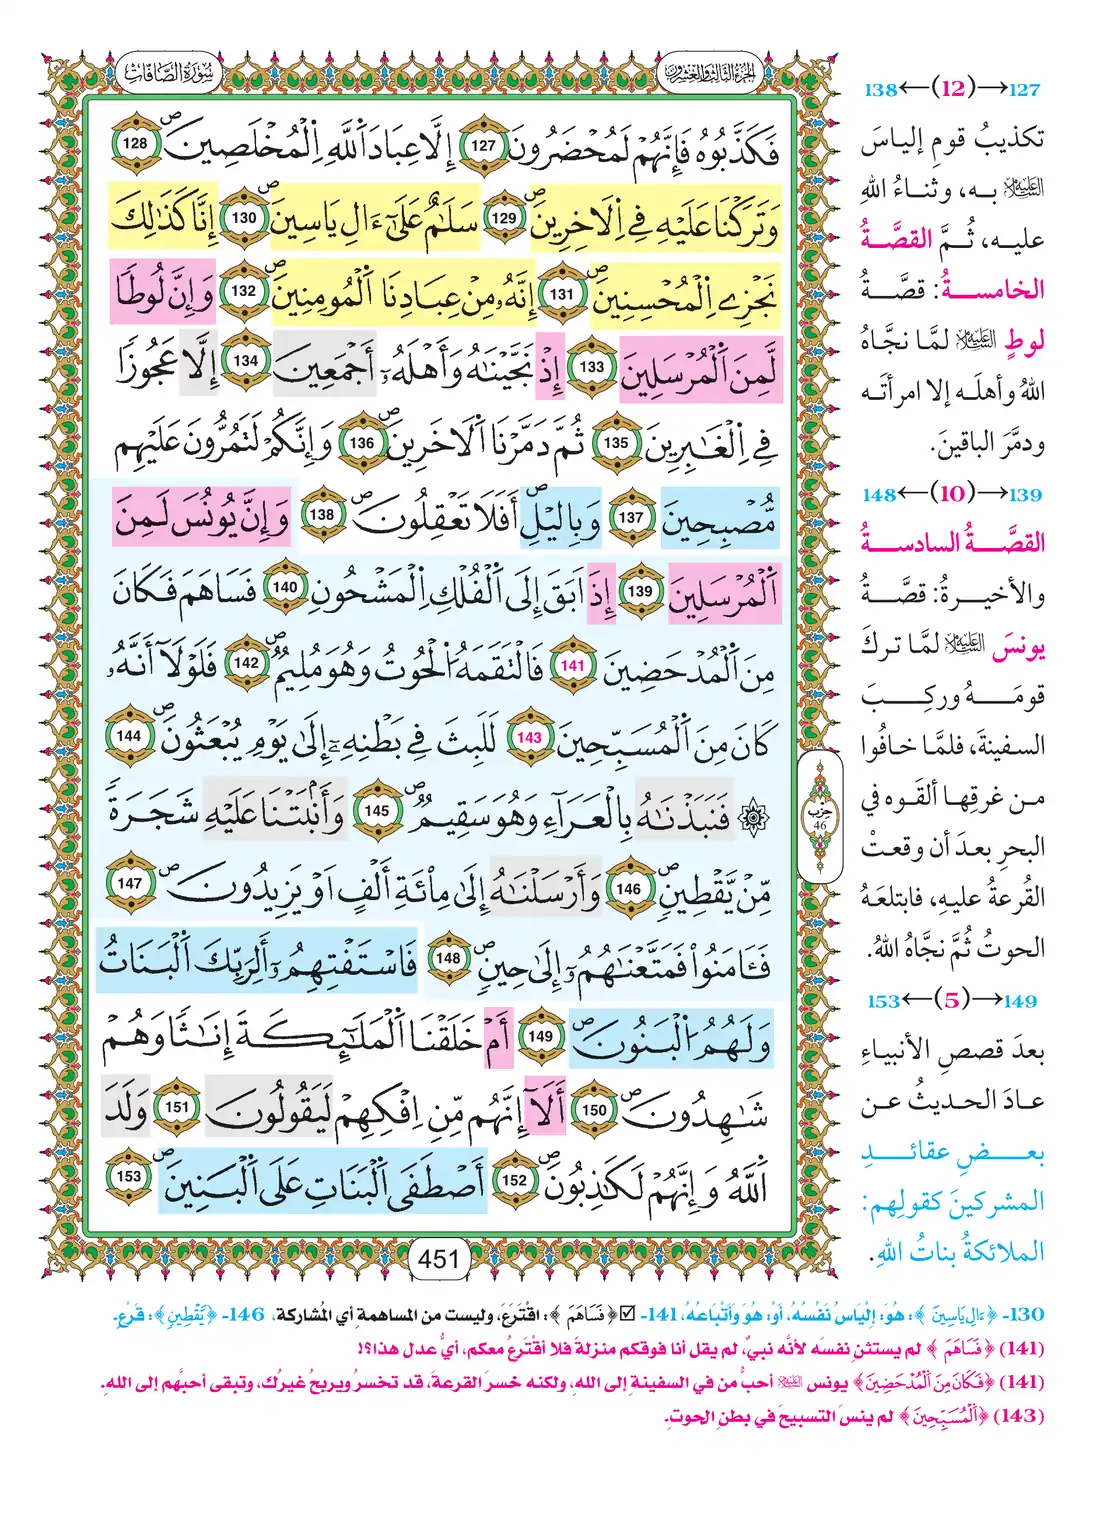 سُورَةُ الصَّافَّاتِ
الجزء الثالث والعشرون
فَكَذَّبُوهُ فَإِنَّهُمْ لَمُحْضَرُونَ 127 إِلَّا عِبَادَ اَللَّهِ اِلْمُخْلَصِينَ 128
وَتَرَكْنَا عَلَيْهِ فِے اِلَاخِرِينَ 129 سَلَٰمٌ عَلَىٰٓ ءَالِ يَاسِينَ 130 إِنَّا كَذَٰلِكَ
نَجْزِے اِلْمُحْسِنِينَ 131 إِنَّهُۥ مِنْ عِبَادِنَا اَلْمُومِنِينَ 132 وَإِنَّ لُوطٗا
لَّمِنَ اَلْمُرْسَلِينَ 133 إِذْ نَجَّيْنَٰهُ وَأَهْلَهُۥٓ أَجْمَعِينَ 134 إِلَّا عَجُوزٗا
فِے اِلْغَٰبِرِينَ 135 ثُمَّ دَمَّرْنَا اَلَاخَرِينَ 136 وَإِنَّكُمْ لَتَمُرُّونَ عَلَيْهِم
مُّصْبِحِينَ 137 وَبِالَيْلِ أَفَلَا تَعْقِلُونَ 138 وَإِنَّ يُونُسَ لَمِنَ
اَلْمُرْسَلِينَ 139 إِذَ اَبَقَ إِلَى اَلْفُلْكِ اِلْمَشْحُونِ 140 فَسَاهَمَ فَكَانَ
مِنَ اَلْمُدْحَضِينَ 141 فَالْتَقَمَهُ اُلْحُوتُ وَهُوَ مُلِيمٌ 142 فَلَوْلَآ أَنَّهُۥ
كَانَ مِنَ اَلْمُسَبِّحِينَ 143 لَلَبِثَ فِے بَطْنِهِۦٓ إِلَىٰ يَوْمِ يُبْعَثُونَ 144
۞ فَنَبَذْنَٰهُ بِالْعَرَآءِ وَهُوَ سَقِيمٌ 145 وَأَنۢبَتْنَا عَلَيْهِ شَجَرَةٗ
مِّنْ يَّقْطِينٖ 146 وَأَرْسَلْنَٰهُ إِلَىٰ مِاْئَةِ أَلْفٍ اَوْ يَزِيدُونَ 147
فَـَٔامَنُواْ فَمَتَّعْنَٰهُمُۥٓ إِلَىٰ حِينٖ 148 فَاسْتَفْتِهِمُۥٓ أَلِرَبِّكَ اَلْبَنَاتُ
وَلَهُمُ اُلْبَنُونَ 149 أَمْ خَلَقْنَا اَلْمَلَٰٓئِكَةَ إِنَٰثٗا وَهُمْ
شَٰهِدُونَ 150 أَلَآ إِنَّهُم مِّنِ اِفْكِهِمْ لَيَقُولُونَ 151 وَلَدَ
اَللَّهُ وَإِنَّهُمْ لَكَٰذِبُونَ 152 أَصْطَفَى اَلْبَنَاتِ عَلَى اَلْبَنِينَ 153
حزب 46
451
127→(12)←138
تكذيبُ قومِ إلياسَ
عليه السلام به، وثناءُ اللهِ
عليه، ثُمَّ القصَّةُ
الخامسةُ: قصَّةُ
لوطٍ عليه السلام لمَّا نجَّاهُ
اللهُ وأهلَه إلا امرأتَه
ودمَّرَ الباقينَ.
139→(10)←148
القصَّةُ السادسةُ
والأخيرةُ: قصَّةُ
يونسَ عليه السلام لمَّا تركَ
قومَهُ وركِبَ
السفينةَ، فلمَّا خافُوا
من غرقِها ألقَوه في
البحرِ بعدَ أن وقعتْ
القُرعةُ عليهِ، فابتلعَهُ
الحوتُ ثُمَّ نجَّاهُ اللهُ.
149→(5)←153
بعدَ قصصِ الأنبياءِ
عادَ الحديثُ عن
بعضِ عقائدِ
المشركينَ كقولِهم:
الملائكةُ بناتُ اللهِ.
130- ﴿ءَالِ يَاسِينَ﴾: هُوَ: إِلْيَاسُ نَفْسُهُ، أَوْ: هُوَ وَأَتْبَاعُهُ، 141- ☑ ﴿فَسَاهَمَ﴾: اقْتَرَعَ، وليست من المساهمةِ أي المُشاركة، 146- ﴿يَّقْطِينٖ﴾: قَرْعٍ.
(141) ﴿فَسَاهَمَ﴾ لم يستثنِ نفسَه لأنَّه نبيٌ، لم يقل أنا فوقكم منزلة فلا أقْتَرعُ معكم، أيُّ عدل هذا؟!
(141) ﴿فَكَانَ مِنَ اَلْمُدْحَضِينَ﴾ يونس عليه السلام أحبُّ من في السفينةِ إلى اللهِ، ولكنه خسرَ القرعةَ، قد تخسرُ ويربحُ غيرُك، وتبقى أحبَّهم إلى اللهِ.
(143) ﴿اَلْمُسَبِّحِينَ﴾ لم ينسَ التسبيحَ في بطنِ الحوتِ.